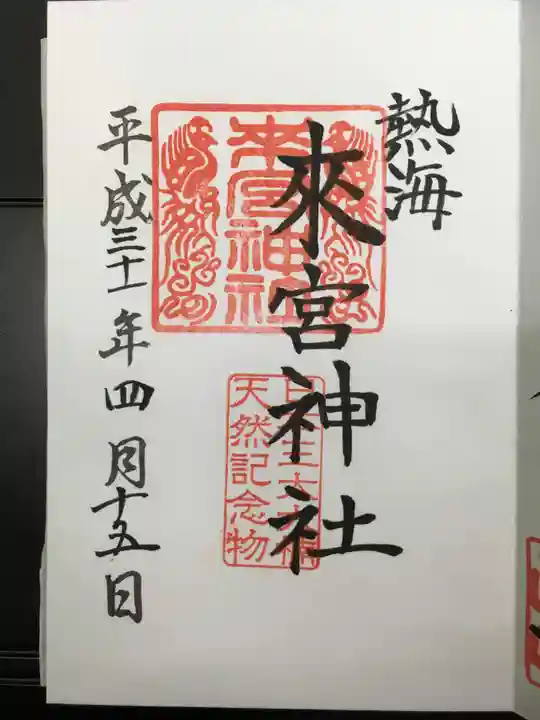 熱海
來宮神社
來宮神社
天然記念物
平成三十一年四月十五日